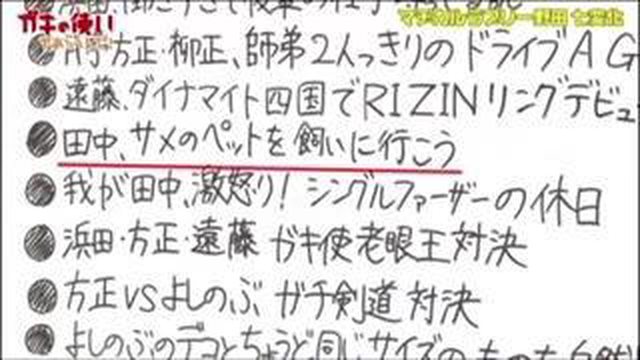 ガキの使い
マヂカルラブリー野田 七変化
方正・柳正、師弟2人っきりのドライブAG
遠藤、ダイナマイト四国でRIZINリングデビュ
田中、サメのペットを飼いに行こう
我が田中、激怒り!シングルファーザーの休日
浜田・方正・遠藤 ガキ使老眼王対決
方正VSよしのぶ ガチ剣道対決
よしのぶのデコとちょうど同じサイズの